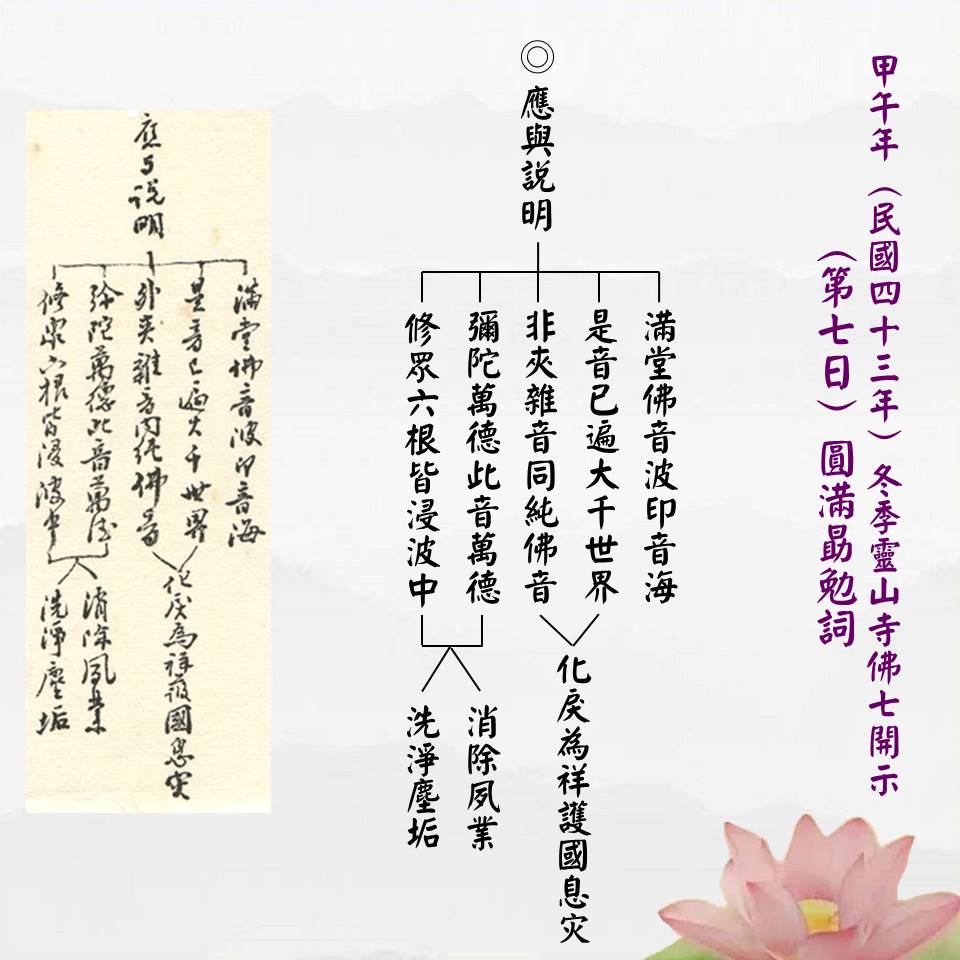 甲午年（民國四十三年）冬季靈山寺佛七開示
（第七日）圓滿勗勉詞
◎應與説明
滿堂佛音波印音海
是音已遍大千世界
非夾雜音同純佛音
彌陀萬德此音萬德
修眾六根皆浸波中
化戾為祥護國息灾
消除夙業
洗淨塵垢
應与说明
滿堂佛音波印音海
是音已遍大千世界
非夾雜音同純佛音
弥陀萬德此音萬德
修眾六根皆浸波中
化戾為祥護國息灾
消除夙業
洗淨塵垢